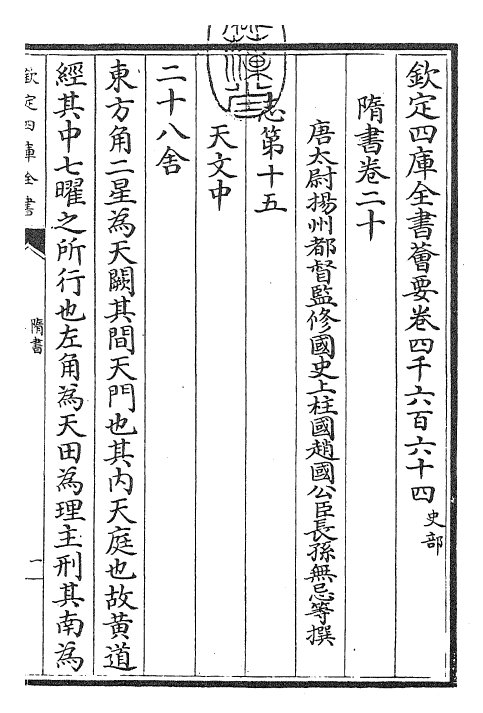 欽定四庫全書薈要卷四千六百六十四 史部
隋書卷二十
唐太尉揚州都督監修國史上柱國趙國公臣長孫無忌等撰
志第十五
天文中
二十八舍
東方角二星為天闕其間天門也其内天庭也故黄道
經其中七曜之所行也左角為天田為理主刑其南為
欽定四庫全書
隋書
一